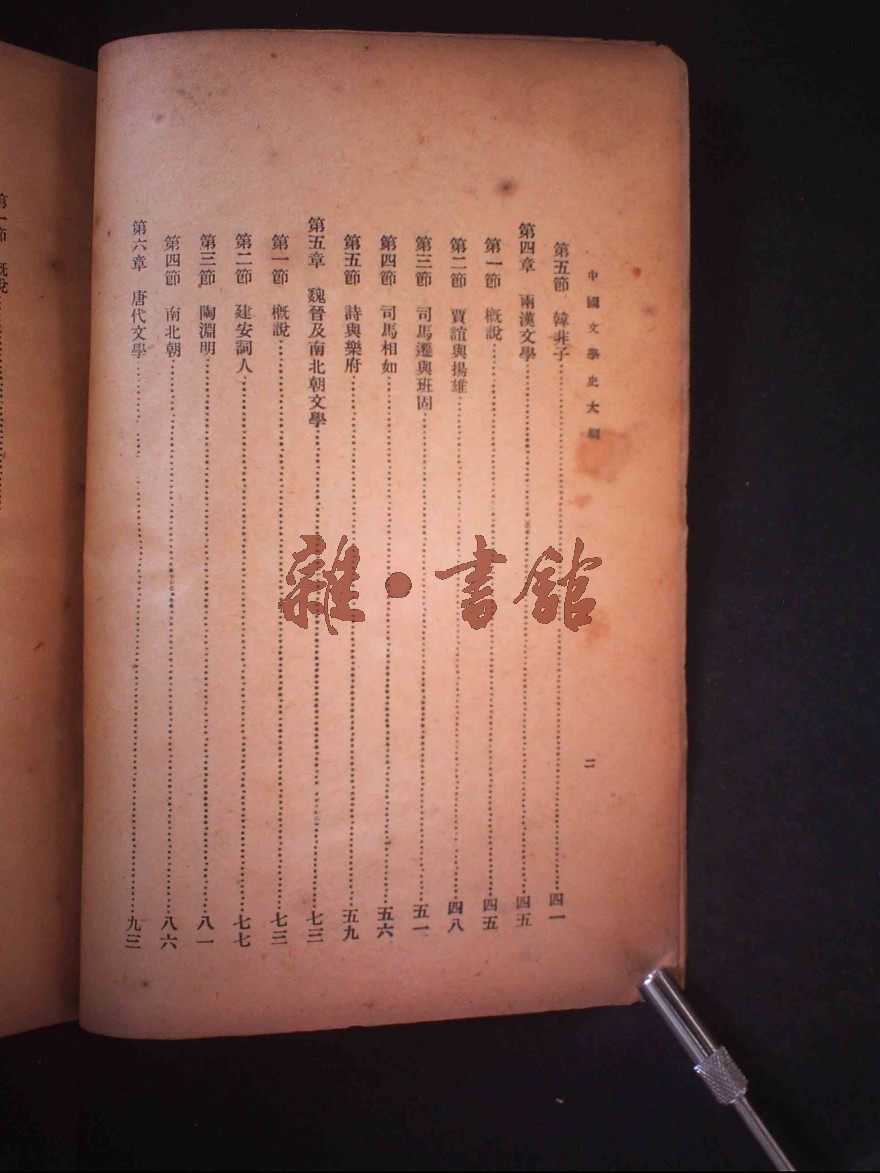 中國文學史大綱
二
第五節 韓非子……四一
第四章 兩漢文學……四五
第一節 概說……四五
第二節 賈誼與揚雄……四八
第三節 司馬遷與班固……五一
第四節 司馬相如……五六
第五節 詩與樂府……五九
第五章 魏晉及南北朝文學……七三
第一節 概說……七三
第二節 建安詞人……七七
第三節 陶淵明……八一
第四節 南北朝……八六
第六章 唐代文學……九三
雜·書館
第一節 概說……